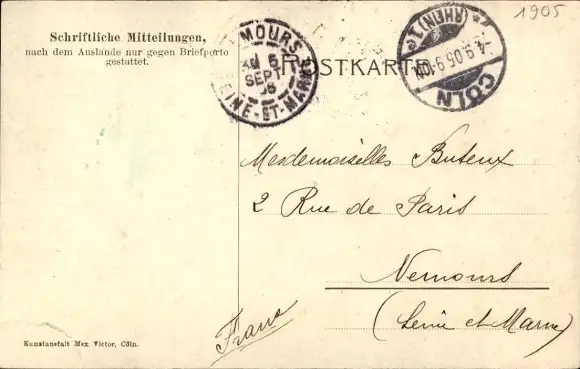 Schriftliche Mitteilungen,
nach dem Auslande nur gegen Briefporto
gestattet.
POSTKARTE
1905
MOURS
5
SEPT
05
SEINE-ET-MARNE
CÖLN
(RHEIN) 1
4.9.05.9-10N
Mesdemoiselles Buteux
2 Rue de Paris
Nemours
(Seine et Marne)
Franc
Kunstanstalt Max Victor, Cöln.